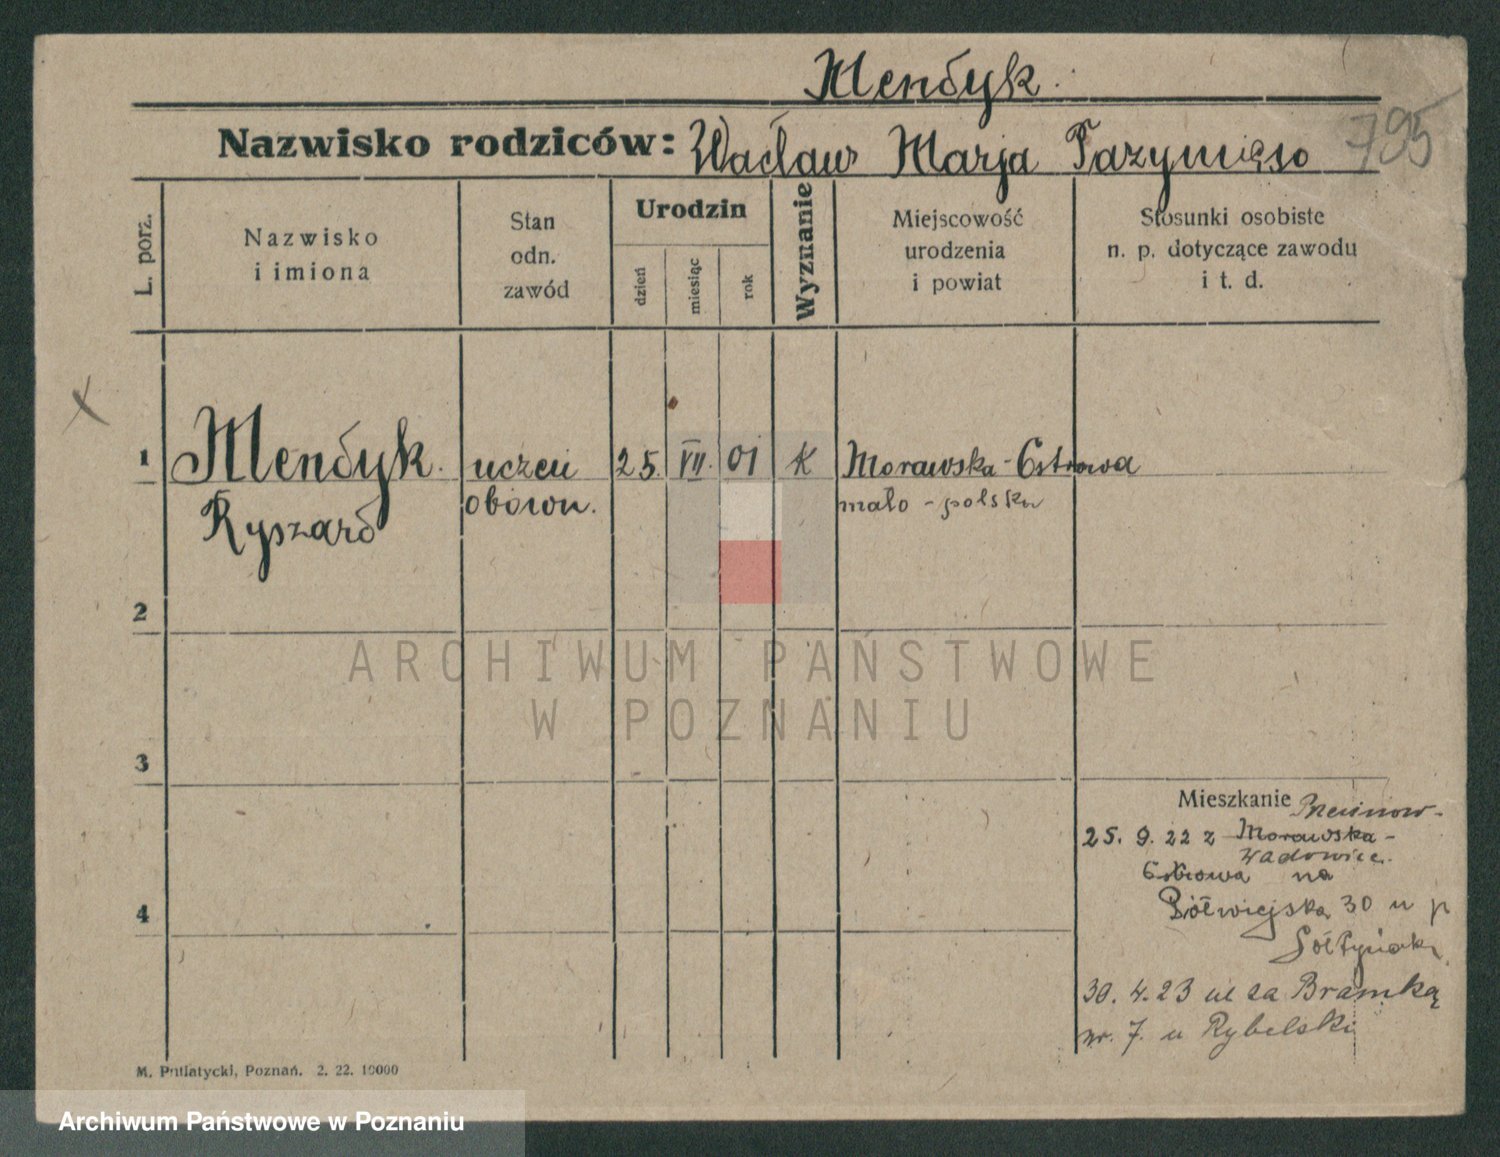 Mendyk.
Nazwisko rodziców: Wacław Marja
795
L. porz.
Nazwisko
i imiona
Stan
odn.
zawód
Urodzin
dzień
miesiąc
rok
Wyznanie
Miejscowość
urodzenia
i powiat
Stosunki osobiste
n. p. dotyczące zawodu
i t. d.
1 Mendyk. uczeń 25. VII. 01 K Morawska-Ostrowa
Ryszard mało-polska
2
3
4
ARCHIWUM PAŃSTWOWE
W POZNANIU
Mieszkanie
25. 9. 22 z Morawska-
Wadowice.
Ostrowa na
Półwiejska 30 u p
Sołtysiak
30. 4. 23 ul za Bramką
nr. 7. u Rybelski
M. Putiatycki, Poznań. 2. 22. 10000
Archiwum Państwowe w Poznaniu